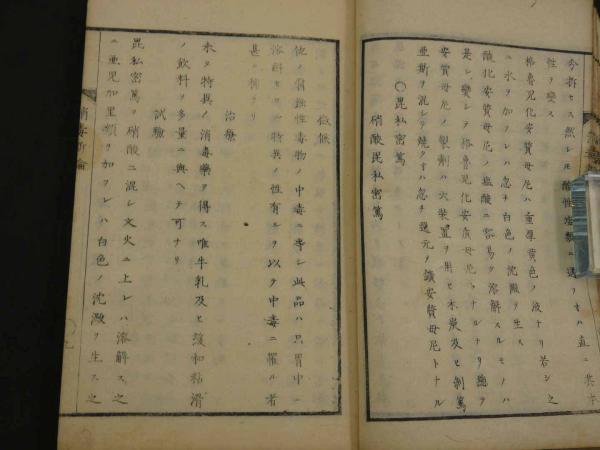 性ヲ變ス
格魯兒化安質母尼ハ重厚黄色ノ液ナリ若シ之
ニ水ヲ加フレハ忽チ白色ノ沈澱ヲ生ス
酸化安質母尼ノ塩酸ニ容易ク溶解スルモノハ
是レ變シテ格魯兒化安質母尼トナルナリ總テ
安質母尼ノ製劑ハ火装置ヲ用ヒ木炭及ヒ剥篤
亜斯ヲ混シテ燒クキハ忽チ還元ヲ鑛安質母尼トナル
○毘私密篤
硝酸毘私密篤
徴候
他ノ腐蝕性毒物ノ中毒ニ等シ此品ハ只胃中ニ
溶解セサル特異ノ性有ルヲ以テ中毒ニ罹ル者
甚タ稀ナリ
治療
未タ特異ノ消毒藥ヲ得ス唯牛乳及ヒ緩和粘滑
ノ飲料ヲ多量ニ與ヘテ可ナリ
試驗
毘私密篤ヲ硝酸ニ混シ文火ニ上レハ溶解ス之
ニ亜児加里類ヲ加フレハ白色ノ沈澱ヲ生ス之